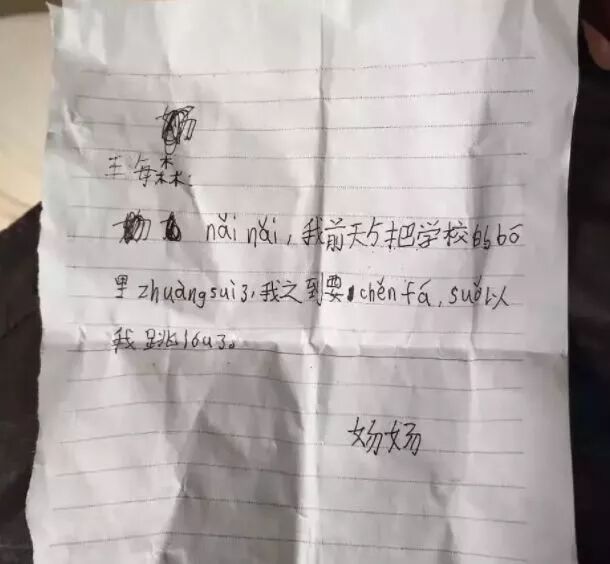 王每森:
nǎi nǎi,我前天与把学校的bō
里zhuàngsuì3,我之到要chěnfá,suǒ以
我跳lóu3。